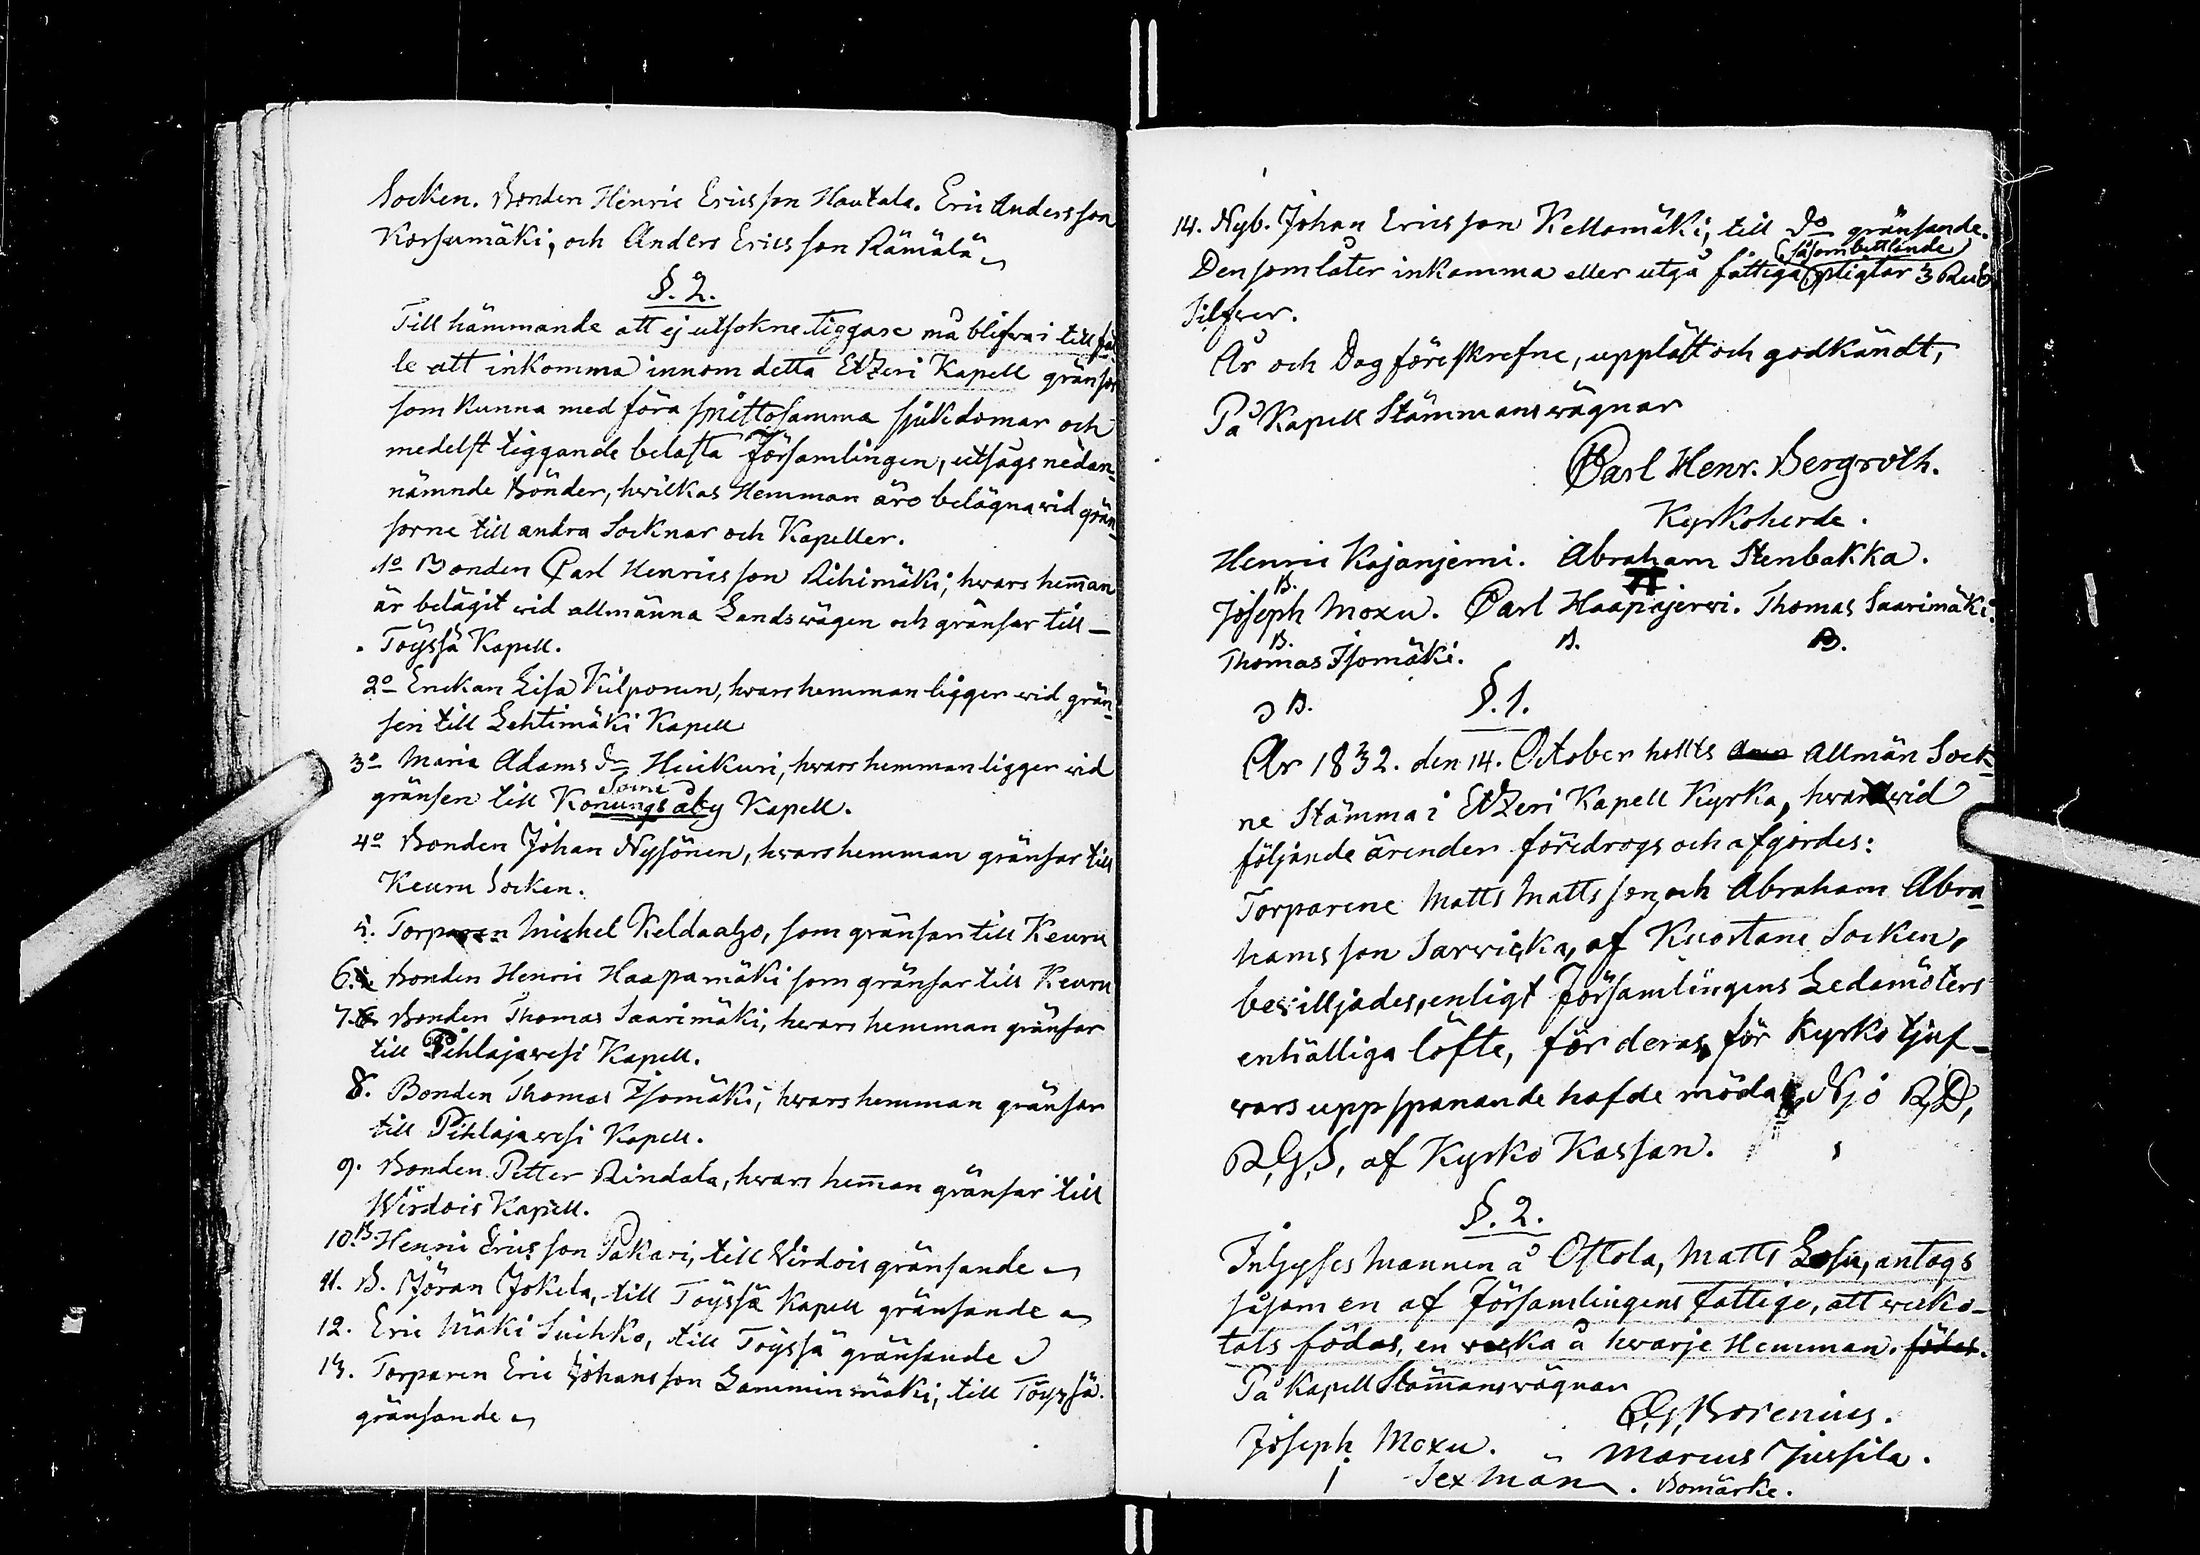 Socken. Bonden Henric Ericsson Hautala. Eric Andersson
Korsumäki, och Anders Ericsson Rämälä
§. 2.
Till hämmande att ej utsokne tiggare må blifwa i till fäl¬
le att inkomma innom detta Etzeri Kapell gränsor
som kunna med föra smittosamma sjukdomar och
medelst tiggande belasta Församlingen, utsågs nedan¬
nämnde Bönder, hwilkas Hemman äro belägna wid grän¬
sorne till andra Socknar och Kapeller.
1o Bonden Carl Henricsson Rihimäki, hwars hem̄an
är belägit wid allmänna Landswägen och gränsar till
Töyssä Kapell.
2o Enckan Lisa Kilponen, hwars hemman ligger wid grän¬
sen till Lehtimäki Kapell
3o Maria Adams dr Huikuri, hwars hemman ligger wid
gränsen till Konungs åby Kapell.
4o Bonden Johan Nysönen, hwars hemman gränsar till
Keuru Socken.
5. Torparen Michel Keldaaljo, som gränsar till Keuru
6. Bonden Henric Haapamäki som gränsar till Keuru
7. Bonden Thomas Saarimäki, hwars hemman gränsar
till Pihlajawesi Kapell.
8. Bonden Thomas Isomäki, hwars hemman gränsar
till Pihlajawesi Kapell.
9. Bonden Petter Rindala, hwars hem̄an gränsar till
Wirdois Kapell.
10. B Henric Ericsson Pakari, till Virdois gränsande
11. B. Jöran Jokela, till Töyssä Kapell gränsande
12. Eric Mäki Suihko, till Töyssä gränsande
13. Torparen Eric Johansson Lamminmäki, till Töyssä
gränsande
14. Nyb. Johan Ericsson Kellomäki, till Do gränsande.
(såsom bettlande)
Den som låter inkomma eller utgå fattiga pligtar 3 Rub
Silfwer.
År och Dag föreskrefne, uppläst och godkändt,
På Kapell Stämmans wägnar
Carl Henr. Bergroth.
Kyrkoherde.
Henric Kajanjerwi. Abraham Stenbakka.
B.
Joseph Moxu. Carl Haapajerwi. Thomas Saarimäki.
B. B. B.
Thomas Isomäki.
B.
§. 1.
År 1832. den 14. October hölts Allmän Sock¬
ne Stämma i Etzeri Kapell Kyrka, hwarwid
följande ärender föredrogs och afgjordes:
Torparene Matts Mattsson och Abraham Abra¬
hamsson Sarwicka, af Kuortane Socken,
bewilljades, enligt Församlingens Ledamöters
enhälliga löfte, för deras för Kyrko tjuf¬
wars uppspanande hafde möda, Tjo R.D,
R.G.S, af Kyrko Kassan.
§. 2.
Inhyses Mannen å Ostola, Matts Losu, antogs
såsom en af Församlingens fattige, att wecko¬
tals födas, en wecka å hwarje Hemman. födas.
På Kapell Stämmans wägnar
C.G. Borenius.
Joseph Moxu. Marcus Jussila.
Sex Män. Bomärke.